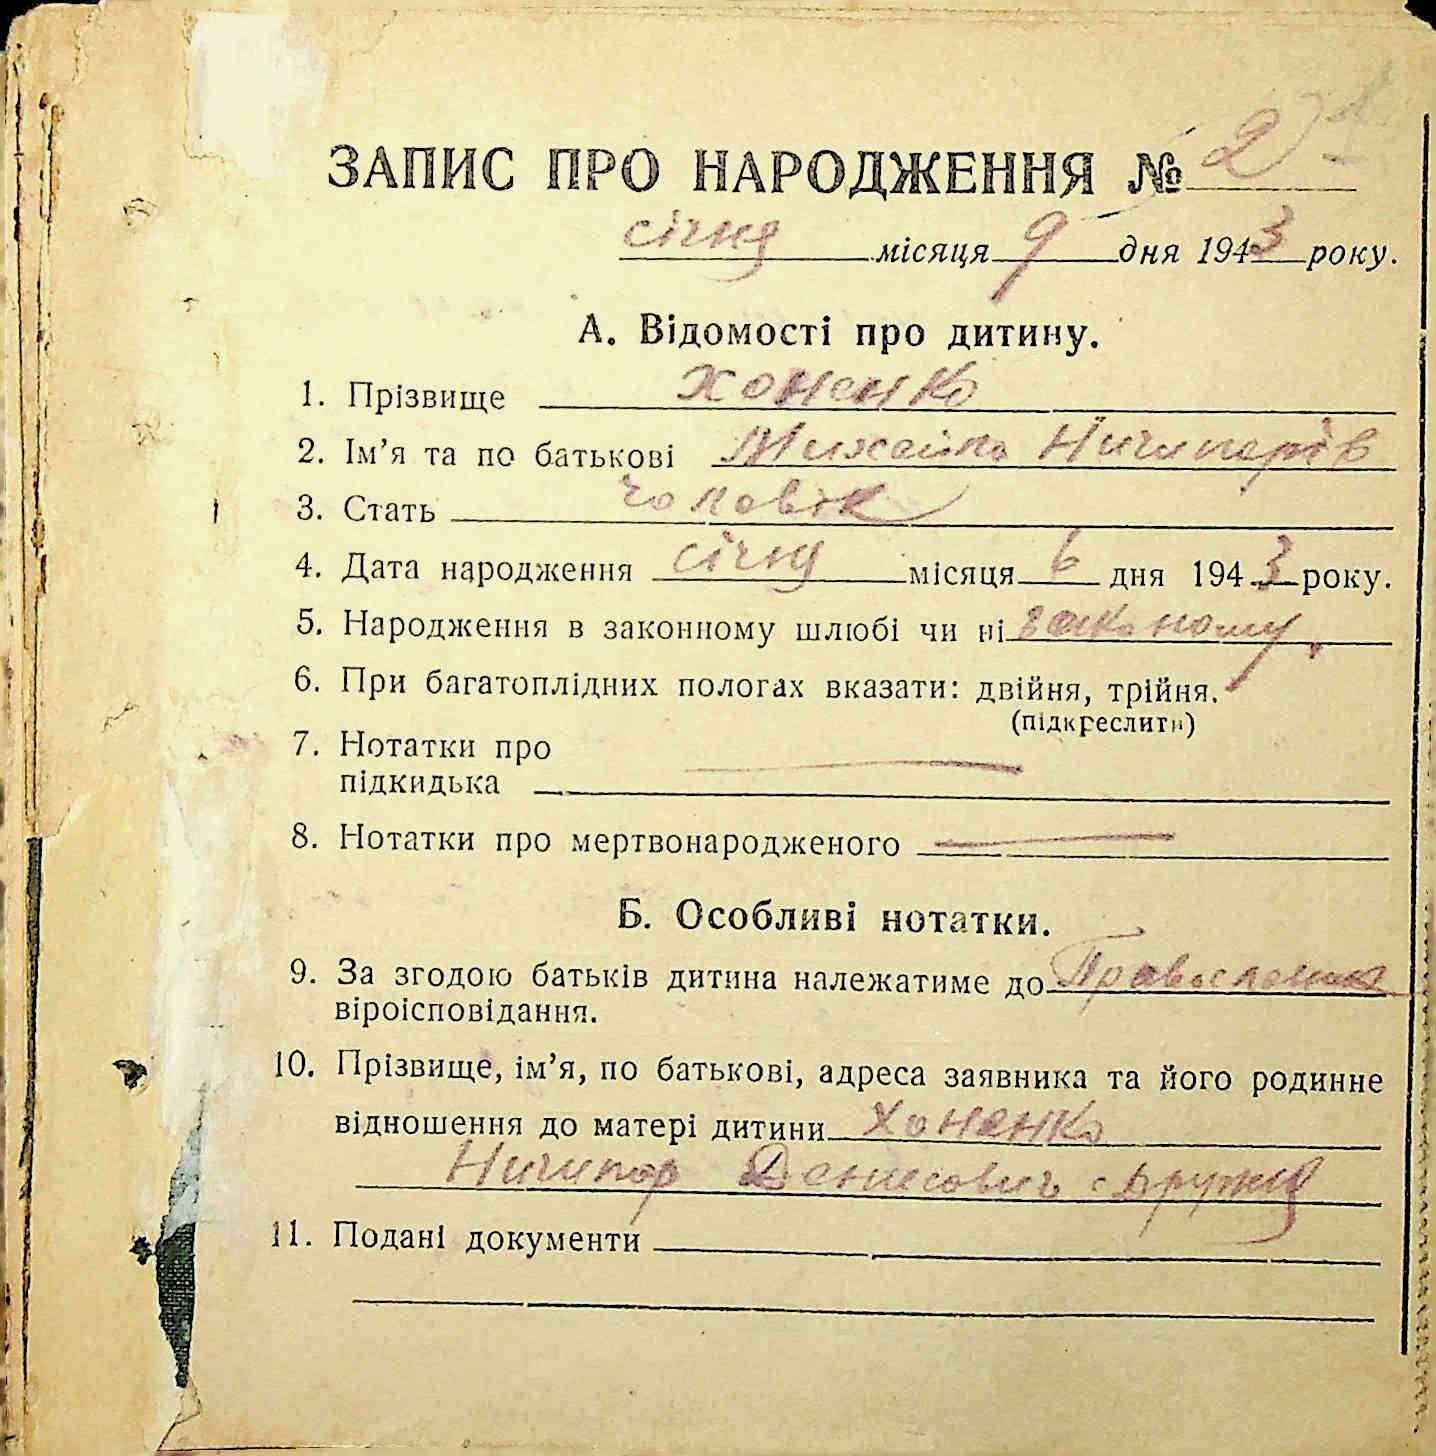 ЗАПИС ПРО НАРОДЖЕННЯ № 2
січня місяця 9 дня 1943 року.
А. Відомості про дитину.
1. Прізвище Хоненко
2. Ім’я та по батькові Михайло Ничипорів
3. Стать чоловік
4. Дата народження січня місяця 6 дня 1943 року.
5. Народження в законному шлюбі чи ні законому
6. При багатоплідних пологах вказати: двійня, трійня.
(підкреслити)
7. Нотатки про
підкидька
8. Нотатки про мертвонародженого
Б. Особливі нотатки.
9. За згодою батьків дитина належатиме до
віроісповідання.
10. Прізвище, ім’я, по батькові, адреса заявника та його родинне
відношення до матері дитини Хоненко
Ничипор Денисович
11. Подані документи